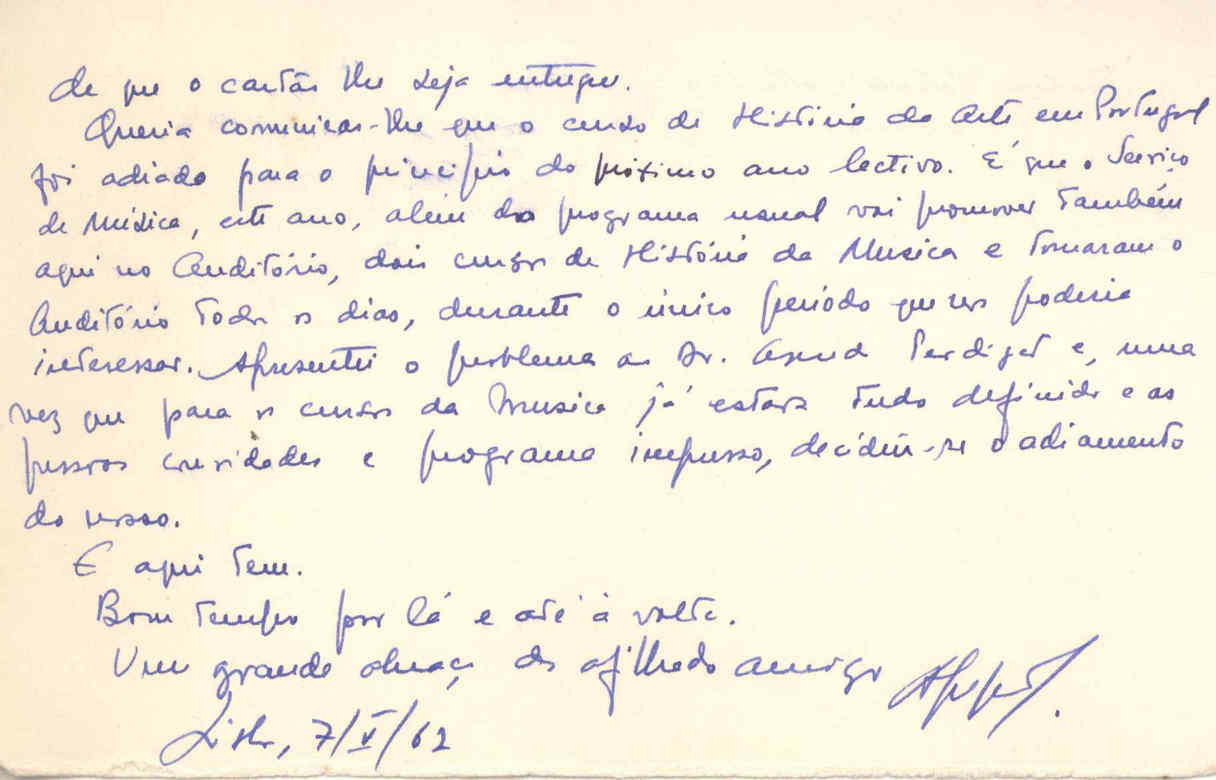 de que o cartão lhe seja entregue.
Queria comunicar-lhe que o curso de História da Arte em Portugal
foi adiado para o princípio do próximo ano lectivo. É que o Serviço
de Música, este ano, além do programa usual vai promover também
aqui no Auditório, dois cursos de História da Musica e tomaram o
Auditório todos os dias, durante o único período que nos poderia
interessar. Apresentei o problema ao Dr. Azeredo Perdigão e, uma
vez que para os cursos da Musica já estava tudo definido e as
pessoas convidadas e programa impresso, decidiu-se o adiamento
do nosso.
E aqui tem.
Bom tempo por lá e até à volta.
Um grande abraço do afilhado amigo
Lisboa, 7/V/62